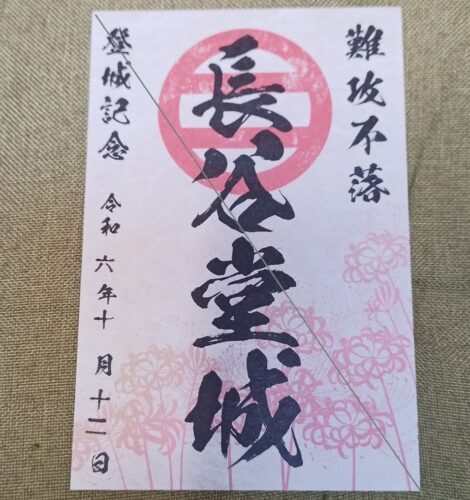 難攻不落
長谷堂城
登城記念 令和六年十月十二日